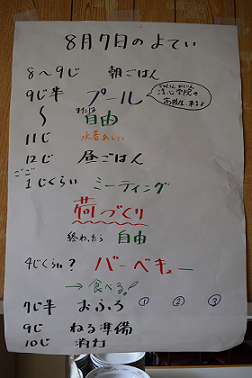 8月7日のよてい
8～9じ 朝ごはん
9じ半 プール
または
～ 自由
11じ 水着あらい
12じ 昼ごはん
ごご
1じくらい ミーティング
荷づくり
終わったら 自由
4じくらい? バーベキュー
→ 食べる!
7じ半 おふろ ① ② ③
9じ ねる準備
10じ 消灯